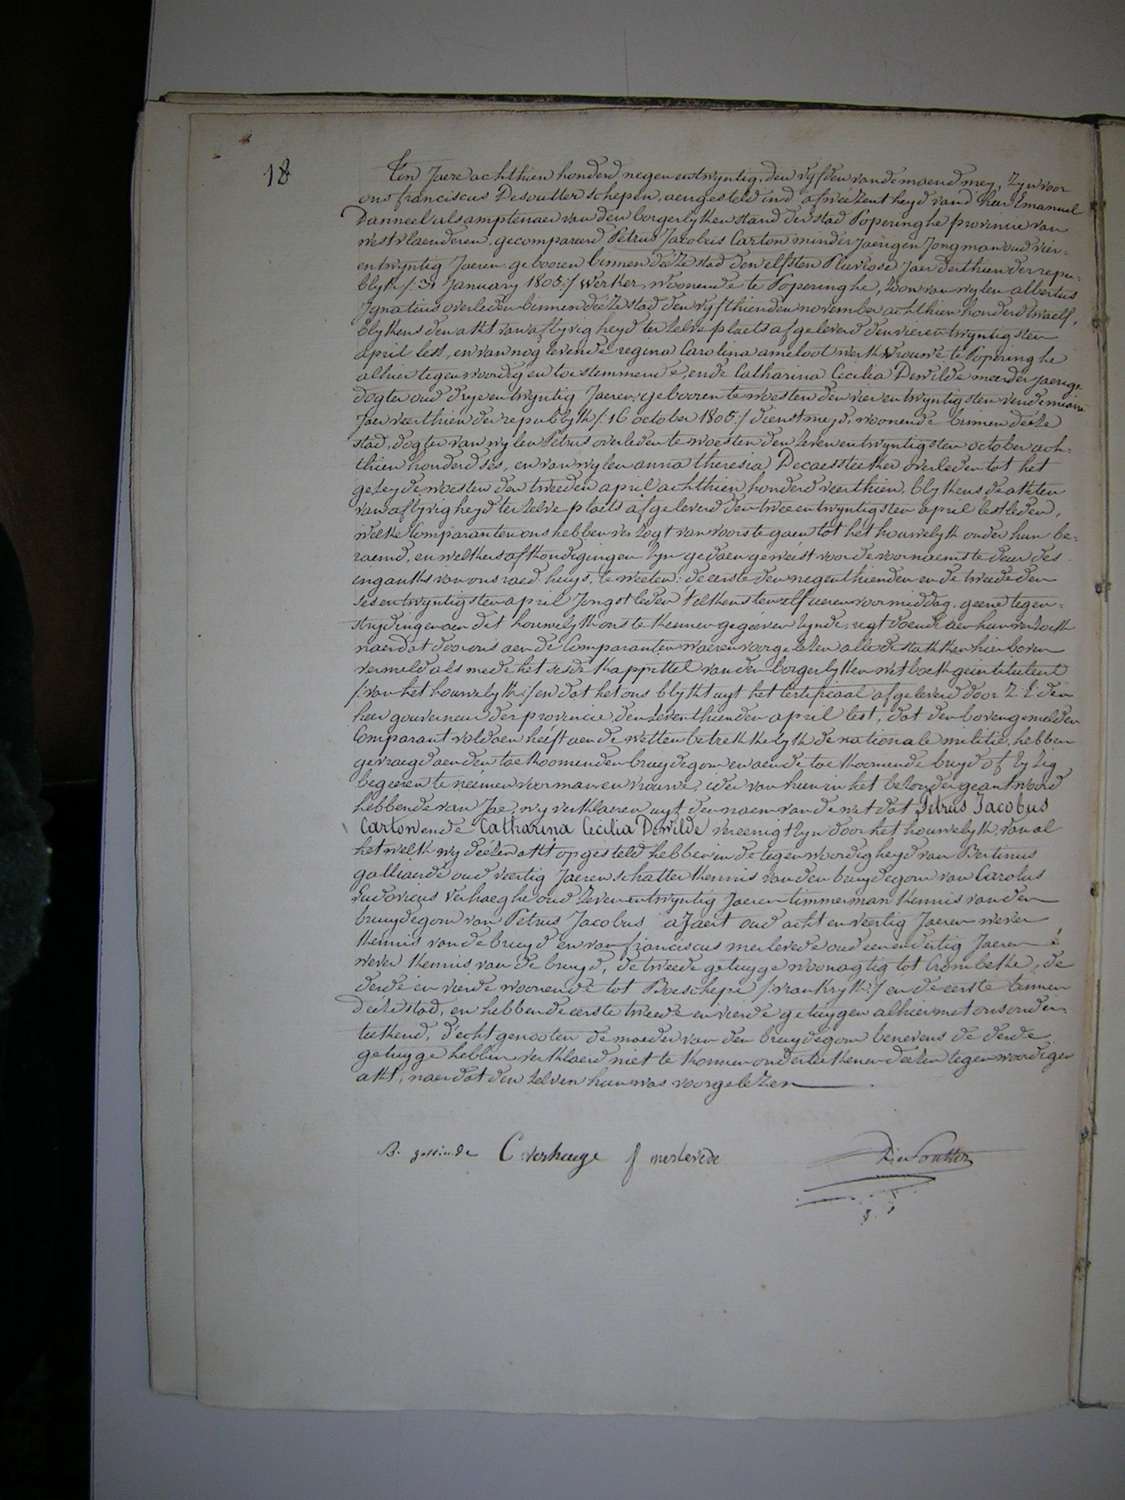 18
Ten Jaere achthien honderd negen entwyntig, den vyfden van de maend mey, zyn voor
ons franciscus Desoutter schepen, aengesteld ind' afweezentheyd vand' heer Emanuel
Danneel als amptenaer van den borgerlyken stand der stad Poperinghe provincie van
westvlaenderen, gecompareerd Petrus Jacobus Carton minderjaerigen Jongman oud vier-
entwyntig Jaeren gebooren binnen deeze stad den elfsten Pluviose Jaer derthien der repu-
blyk /: 31 January 1805 :/ werker, woonende te Poperinghe, zoon van wylen albertus
Ignatius overleden binnen deeze stad den vyfthienden november achthien honderd twaelf,
blykens den akt van aflyvigheyd ter zelve plaets afgeleverd den vier en twyntigsten
april lest, en van nog levende regina Carolina ameloot werkvrouwe te Poperinghe
alhier tegenwoordig en toestemmende, ende Catharina Cecilia Dewilde meerderjaerige
dogter oud dryentwyntig Jaeren, gebooren te woesten den vier en twyntigsten vendemiaire
Jaer veerthien der republyk /: 16 october 1805 :/ dienstmeyd, woonende binnen deeze
stad, dogter van wylen Petrus overleden te woesten den zeven entwyntigsten october ach-
thien honderd ses, en van wylen anna theresia Decaesteeker overleden tot het
gezeyde woesten den tweeden april achthien honderd veerthien, blykens de akten
van aflyvigheyd ter zelve plaets afgeleverd den twee entwyntigsten april lestleden,
welke Comparanten ons hebben verzogt van voorts te gaen tot het houwelyk onder hun be-
raemd, en welkers afkondigingen zyn gedaen geweest voor de voornaemste deur des
ingankks van ons raed huys, te weeten: de eerste den negenthienden en de tweede den
ses entwyntigsten april Jongstleden telkens ten elf ueren voormiddag, geene tegen-
strydingen aen dit houwelyk ons te kennen gegeeven zynde, regt doende aen hun verzoek
naer dat door ons aen de Comparanten waeren voorgelezen alle de stukken hier boven
vermeld als mede het seste kappittel van den borgerlyken wetboek geintituleert
/: van het houwelyk :/ en dat het ons blykt uyt het Certificaat afgeleverd door Z. E. den
heer gouverneur der provincie den zeventhienden april lest, dat den bovengemelden
Comparant voldaen heeft aen de wetten betrekkelyk de nationale militie, hebben
gevraegd aen den toekoomenden bruydegom en aen de toekoomende bruyd of zy zig
begeeren te neemen voor man en vrouwe, ider van hun in het bezonder geantwoord
hebbende van Jae, wy verklaeren uyt den naem van de wet dat Petrus Jacobus
Carton ende Catharina Cecilia Dewilde vereenigt zyn door het houwelyk, van al
het welk wy deezen akt opgesteld hebben in de tegenwoordigheyd van Bertinus
galliaerde oud veertig Jaeren schatter kennis van den bruydegom van Carolus
Ludovicus Verhaeghe oud zeven entwyntig Jaeren timmerman kennis van den
bruydegom van Petrus Jacobus ajaert oud acht en veertig Jaeren wever
kennis van de bruyd en van franciscus merlevede oud een en dertig Jaeren
wever kennis van de bruyd, de tweede getuyge woonagtig tot Crombeke, de
derde en vierde woonende tot Boeschepe /: vrankryk :/ en de eerste binnen
deeze stad, en hebben de eerste tweede en vierde getuygen alhier met ons onder-
teekend, d'echtgenooten de moeder van den bruydegom benevens de derde
getuyge hebben verklaerd niet te konnen onderteekenen deezen tegenwoordigen
akt, naer dat den zelven hun was voorgelezen
B. galliaerde C verhaege f merlevede Desoutter